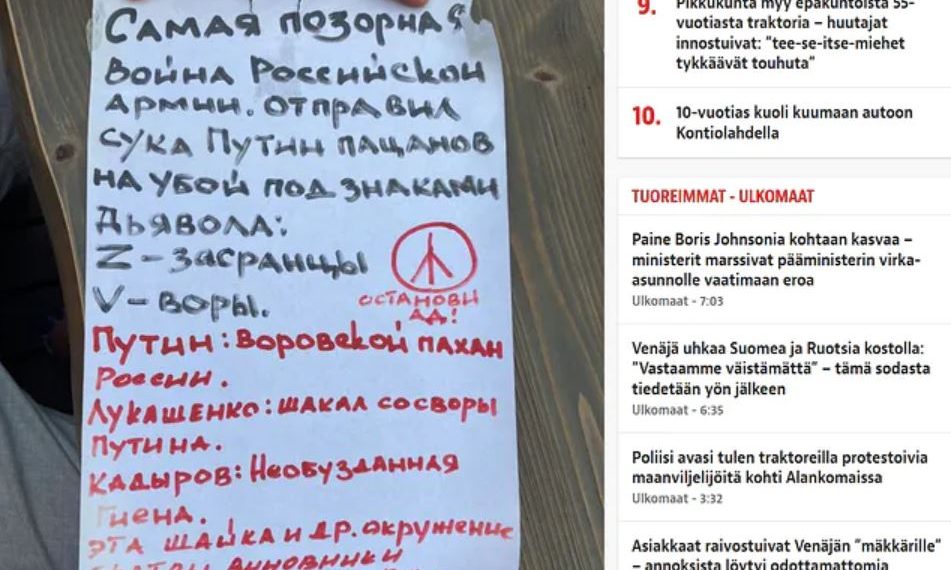 Самая позорная
война Российской
армии. Отправил
сука Путин пацанов
на убой под знаками
дьявола:
Z – засранцы
V – воры.
останови
ад!
Путин: воровской пахан
России.
Лукашенко: шакал со своры
Путина.
Кадыров: Необузданная
гиена.
Эта шайка и др. окружение
виновники
9. Pikkukunta myy epäkuntoista 55-
vuotiasta traktoria – huutajat
innostuivat: "tee-se-itse-miehet
tykkäävät touhuta"
10. 10-vuotias kuoli kuumaan autoon
Kontiolahdella
TUOREIMMAT - ULKOMAAT
Paine Boris Johnsonia kohtaan kasvaa –
ministerit marssivat pääministerin virka-
asunnolle vaatimaan eroa
Ulkomaat - 7:03
Venäjä uhkaa Suomea ja Ruotsia kostolla:
"Vastaamme väistämättä" – tämä sodasta
tiedetään yön jälkeen
Ulkomaat - 6:35
Poliisi avasi tulen traktoreilla protestoivia
maanviljelijöitä kohti Alankomaissa
Ulkomaat - 3:32
Asiakkaat raivostuivat Venäjän "mäkkärille"
– annoksista löytyi odottamattomia